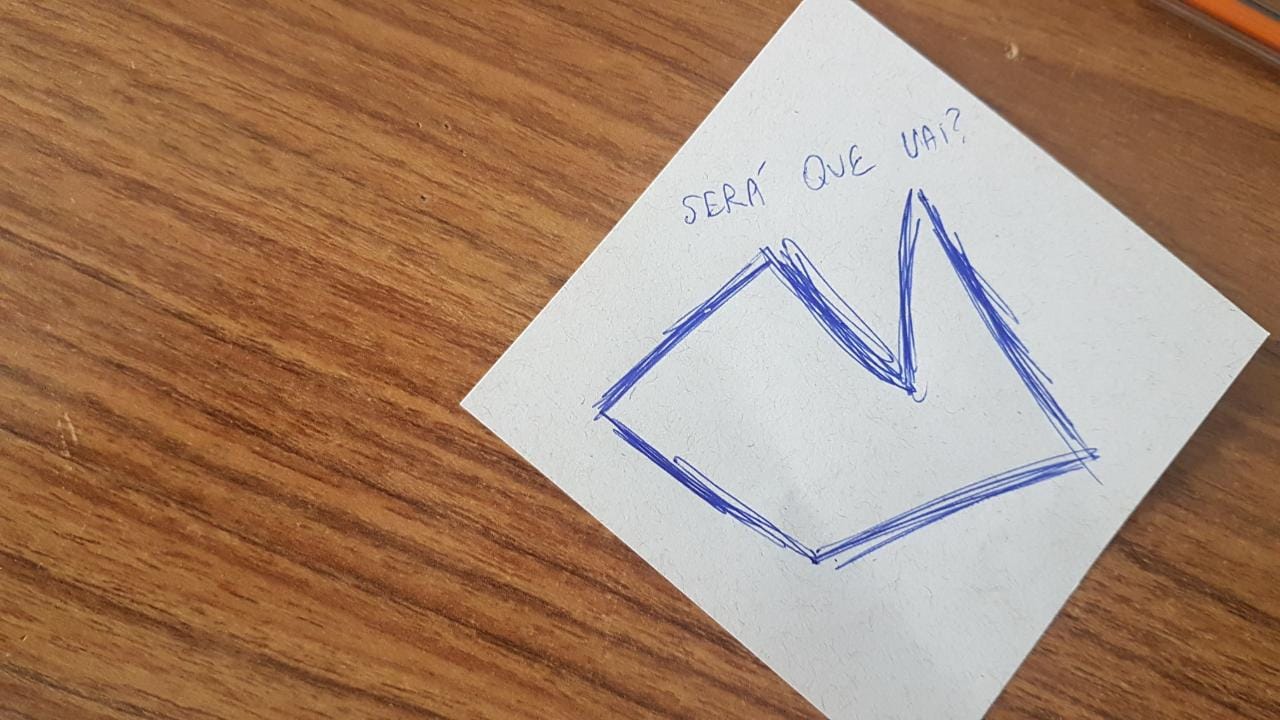 SERÁ QUE VAi?